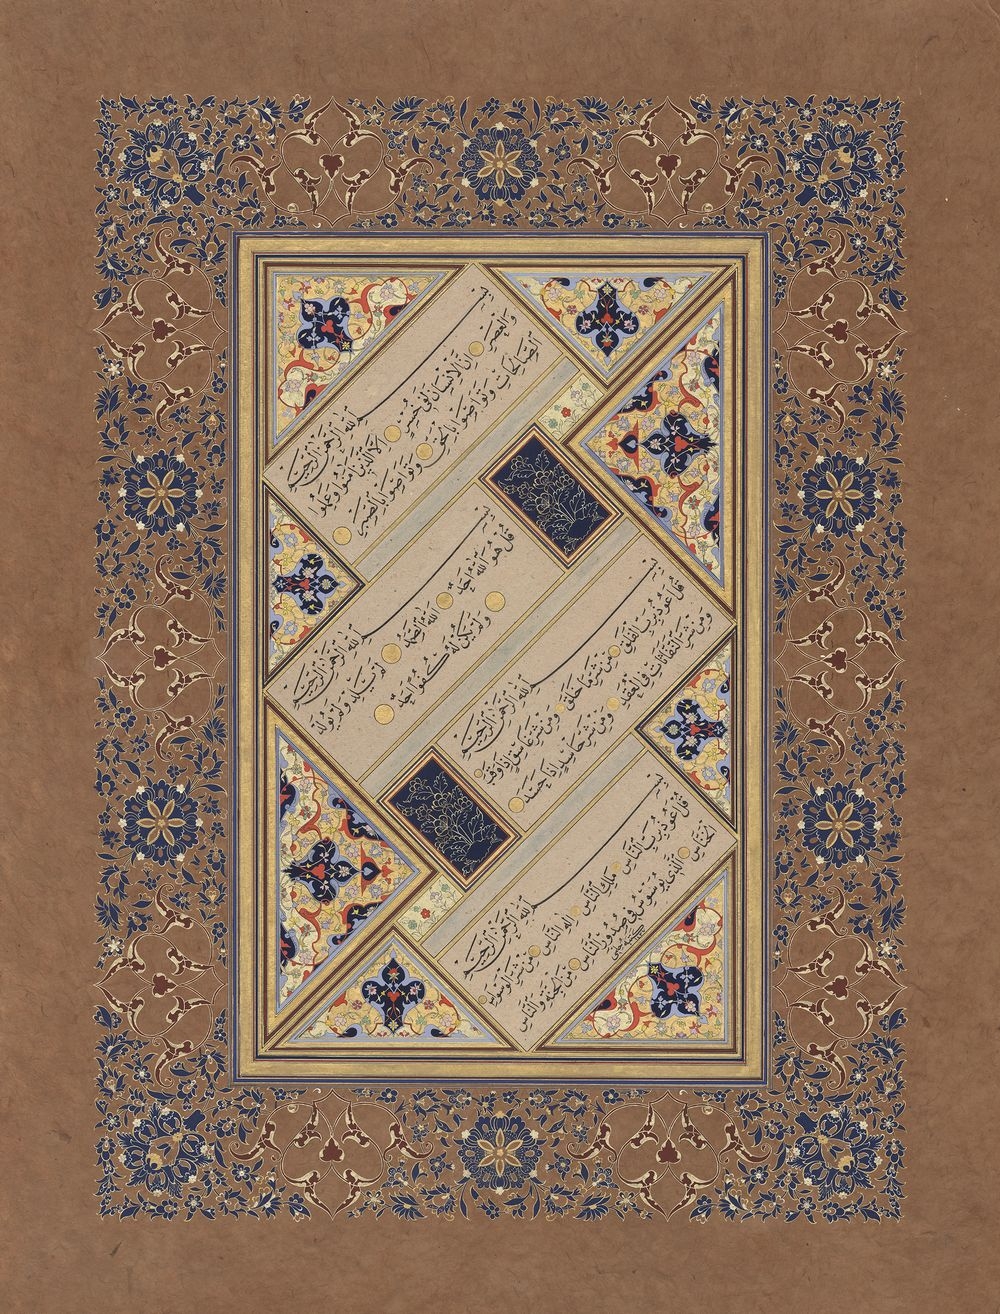 بِسْمِ اللهِ الرَّحْمٰنِ الرَّحِيمِ
وَالْعَصْرِ اِنَّ الْاِنْسَانَ لَفِي خُسْرٍ اِلَّا الَّذِينَ اٰمَنُوا وَعَمِلُوا
الصَّالِحَاتِ وَتَوَاصَوْا بِالْحَقِّ وَتَوَاصَوْا بِالصَّبْرِ
بِسْمِ اللهِ الرَّحْمٰنِ الرَّحِيمِ
قُلْ هُوَ اللهُ اَحَدٌ اَللهُ الصَّمَدُ لَمْ يَلِدْ وَلَمْ يُولَدْ
وَلَمْ يَكُنْ لَهُ كُفُوًا اَحَدٌ
بِسْمِ اللهِ الرَّحْمٰنِ الرَّحِيمِ
قُلْ اَعُوذُ بِرَبِّ الْفَلَقِ مِنْ شَرِّ مَا خَلَقَ وَمِنْ شَرِّ غَاسِقٍ اِذَا وَقَبَ
وَمِنْ شَرِّ النَّفَّاثَاتِ فِي الْعُقَدِ وَمِنْ شَرِّ حَاسِدٍ اِذَا حَسَدَ
بِسْمِ اللهِ الرَّحْمٰنِ الرَّحِيمِ
قُلْ اَعُوذُ بِرَبِّ النَّاسِ مَلِكِ النَّاسِ اِلٰهِ النَّاسِ مِنْ شَرِّ الْوَسْوَاسِ
الْخَنَّاسِ الَّذِي يُوَسْوِسُ فِي صُدُورِ النَّاسِ مِنَ الْجِنَّةِ وَالنَّاسِ